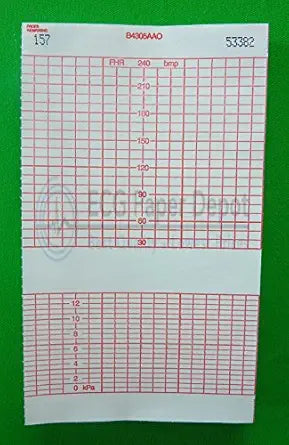 PAGES
REMAINING
157
B4305AAO
53382
FHR 240 bmp
210
180
150
120
90
60
30
ECG Paper Depot
12
10
8
6
4
2
0 kPa